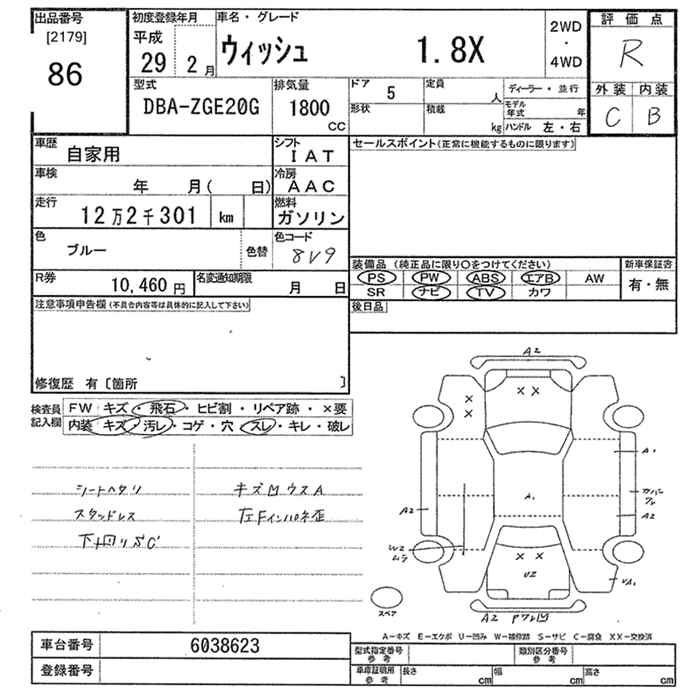 出品番号 初度登録年月 車名・グレード 評価点
[2179] 平成 ウィッシュ 1.8X 2WD・4WD R
86 29 2月
型式 排気量 ドア 5 定員 人 ディーラー・並行 外装 内装
DBA-ZGE20G 1800 CC 形状 積載 kg モデル年式 年 ハンドル 左・右 C B
車歴 自家用 シフト IAT セールスポイント(正常に機能するものに限ります)
車検 年 月( 日) 冷房 AAC
走行 12万2千301 km 燃料 ガソリン
色 ブルー 色替 色コード 8V9
装備品 (純正品に限り○をつけてください) 新車保証書
R券 10,460円 名変通知期限 月 日 PS PW ABS エアB AW 有・無
SR ナビ TV カワ
注意事項申告欄(不具合内容等は具体的に記入して下さい) 後日品
修復歴 有〔箇所 〕
検査員記入欄 FW キズ・飛石・ヒビ割・リペア跡・×要
内装 キズ・汚レ・コゲ・穴・スレ・キレ・破レ
シートヘタリ キズ凹ウスA
スタッドレス 左Fインパネ歪
下廻りSC
A2
××
×
×
A1
A1
カバーワレ
A2
A2
W2
ムラ
××
U2
UA1
スペア
A2 Pワレ凹
A-キズ E-エクボ U-凹み W-補修跡 S-サビ C-腐食 XX-交換済
車台番号 6038623 型式指定番号 参考 類別区分番号 参考
登録番号 車庫証明用 参考 長さ cm 幅 cm 高さ cm